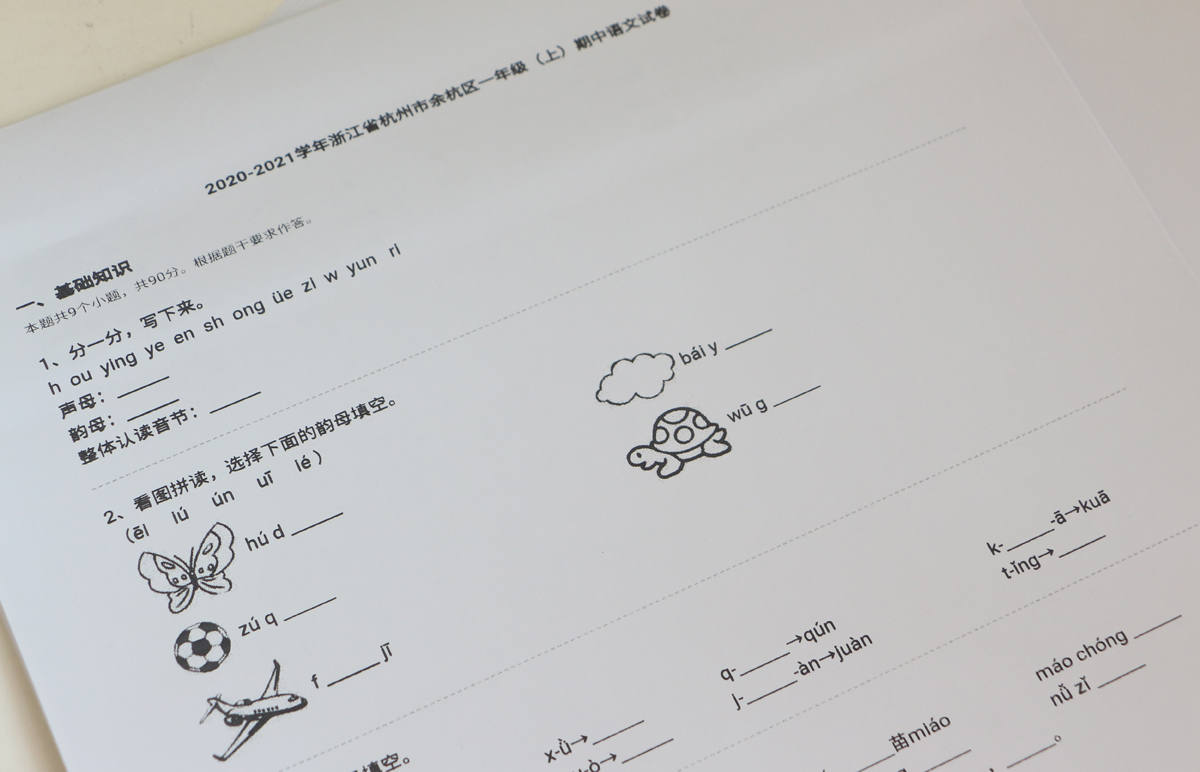 2020-2021学年浙江省杭州市余杭区一年级（上）期中语文试卷
一、基础知识
本题共9个小题，共90分。根据题干要求作答。
1、分一分，写下来。
h ou ying ye en sh ong üe zi w yun ri
声母：______
韵母：______
整体认读音节：______
2、看图拼读，选择下面的韵母填空。
（ēi lú ún uī lé）
hú d ______
bái y ______
zú q ______
wū g ______
f ______ jī
填空。
x-ǜ→______
q-______→qún
k-______-ā→kuā
-ò→______
j-______-àn→juàn
t-ǐng→______
______苗miáo
máo chóng ______
nǚ zǐ ______
______。